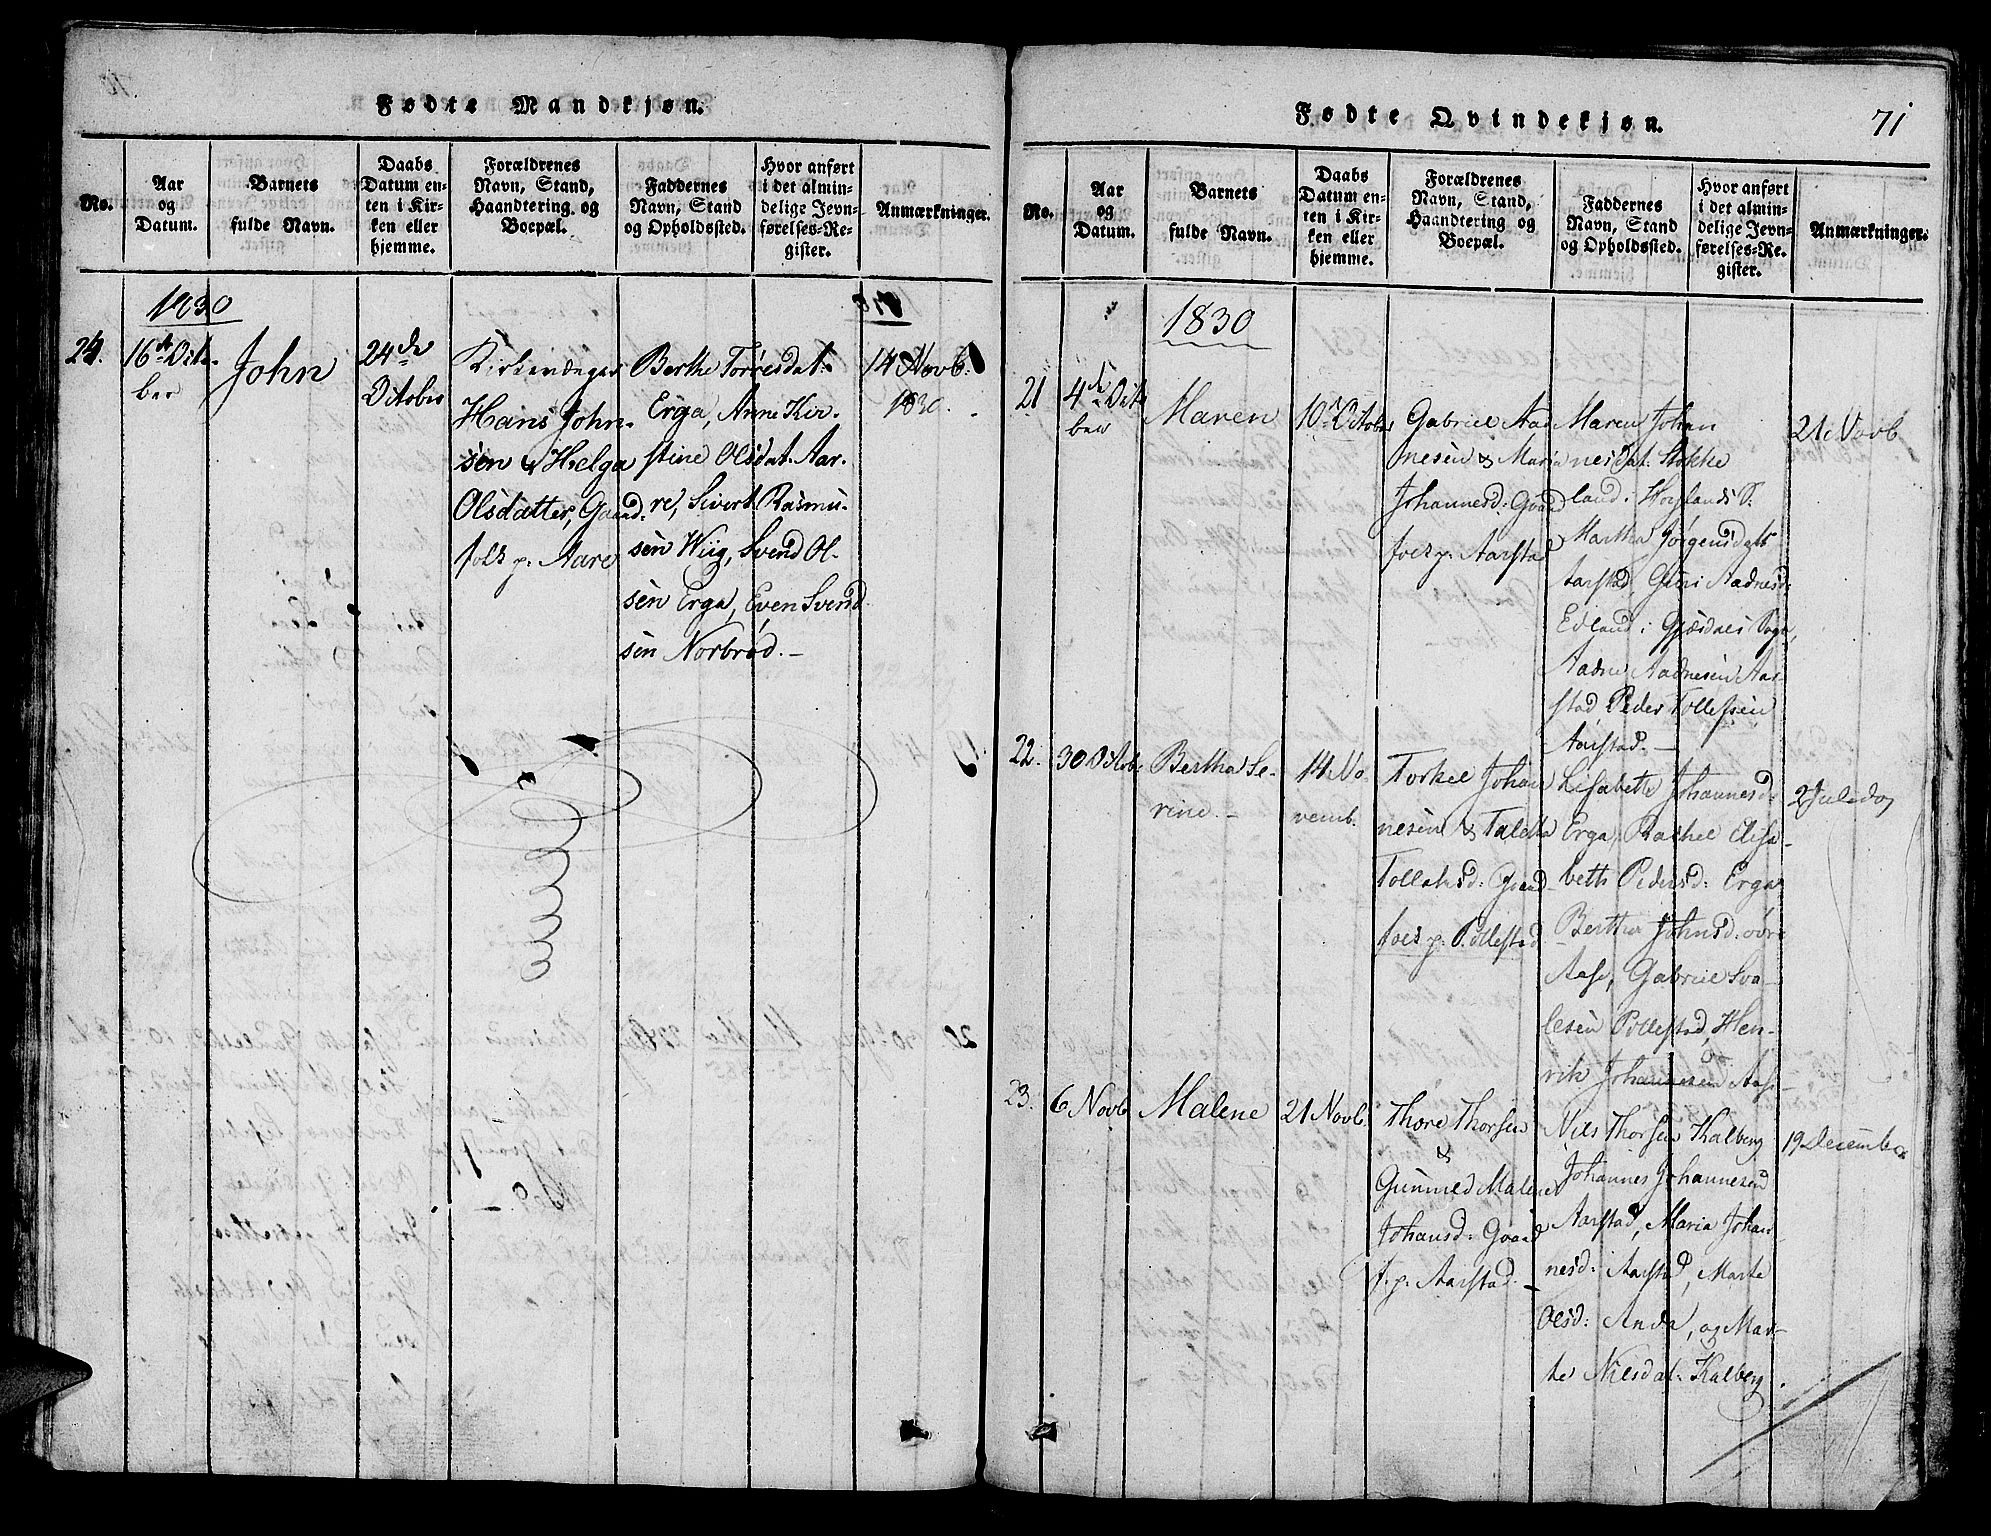 Fødte Mandkjøn.
No.
Aar
og
Datum.
Barnets
fulde Navn.
Daabs
Datum en-
ten i Kir-
ken eller
hjemme.
Forældrenes
Navn, Stand,
Haandtering og
Boepæl.
Faddernes
Navn, Stand
og Opholdssted.
Hvor anført
i det almin-
delige Jevn-
førelses-Re-
gister.
Anmærkninger.
1830
24.
16de Octo-
ber
John
24de
October
Kirkesanger
Hans John-
sen & Helga
Olsdatter, Gaard-
folk p. Aare
Berthe Torresdat.
Erga, Anne Kir-
stine Olsdat. Aar-
re, Sivert Rasmu-
sen Wiig, Svend Ol-
sen Erga, Even Svend
sen Norbrød. -
14 Novb.
1830.
Fødte Qvindekjøn.
71
No.
Aar
og
Datum.
Barnets
fulde Navn.
Daabs
Datum en-
ten i Kir-
ken eller
hjemme.
Forældrenes
Navn, Stand,
Haandtering og
Boepæl.
Faddernes
Navn, Stand
og Opholdssted.
Hvor anført
i det almin-
delige Jevn-
førelses-Re-
gister.
Anmærkninger.
1830
21
4de Octo
ber
Maren
10de October
Gabriel Aad
nesen & Maria
Johannesd: Gaard
folk p. Aarstad
Maren Johan
nesdat. Stokke
land i Hoylands S.
Martha Jørgensdatt
Aarstad, Guri Aadnesd:
Edland i Gjæsdals Sogn,
Aadne Aadnesen Aar-
stad Peder Tollefsen
Aarstad. -
21 Novb
22.
30 Octob.
Bertha Se-
rine. -
14 No-
vemb.
Torkel Johan
nesen & Taletta
Tollaksd: Gaard-
folk p. Pollestad
Lisabette Johannesd:
Erga, Rachel Elisa-
beth Pedersd: Erga
Berthe Johnsd: øvre
Aase, Gabriel Sva-
lesen Pollestad, Hen-
rik Johannesen Aase
2 Juledag
23.
6 Novb
Malene
21 Novb.
Thore Thorsen
&
Gunnild Malene
Johansd: Gaard
f. p. Aarstad. -
Nils Thorsen Kalberg
Johannes Johannesen
Aarstad, Maria Johan-
nesd: Aarstad, Marte
Olsd: Anda, og Mar-
te Nilsdat. Kalberg.
19 December